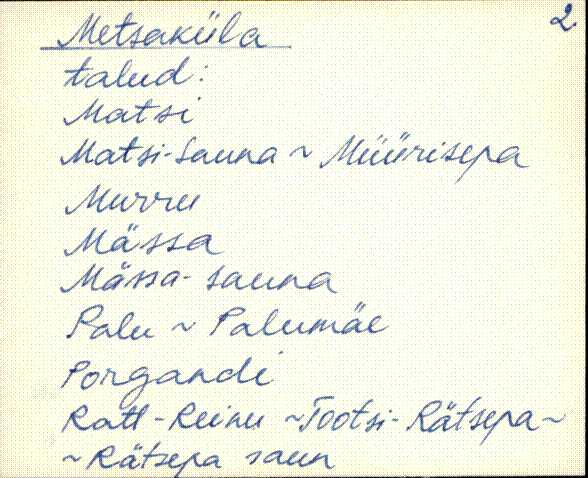 2
Metsaküla
talud:
Matsi
Matsi-Sauna ~ Müürisepa
Murru
Mässa
Mässa-sauna
Palu ~ Palumäe
Porgandi
Ratt-Reinu ~Tootsi-Rätsepa~
~Rätsepa saun